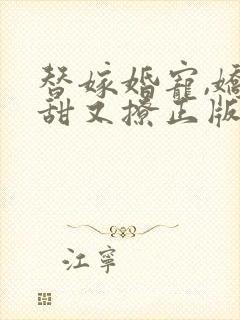 替嫁婚寵,嬌
甜又撩正版
江寧